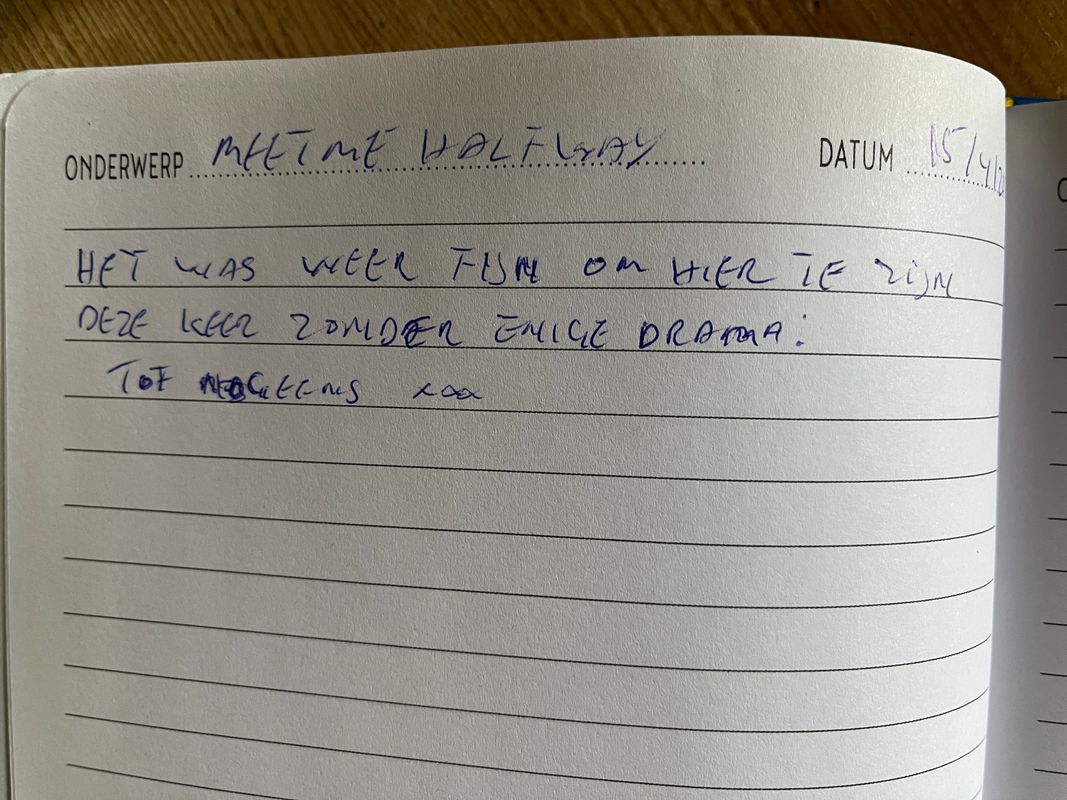 ONDERWERP MEET ME HALFWAY DATUM 15/4/20
HET WAS WEER FIJN OM HIER TE ZIJN
DEZE KEER ZONDER ENIGE DRAMA!
TOT NOG EENS xxx